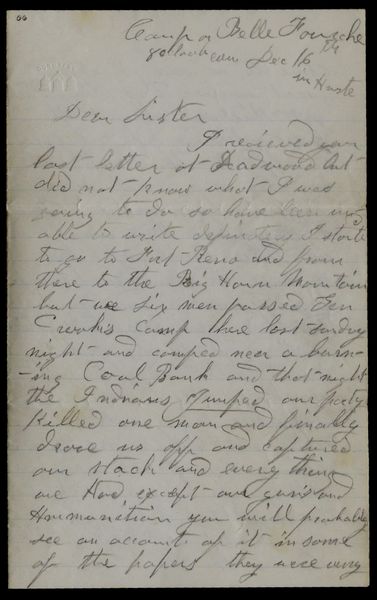 66
Camp on Belle Fourche
Dec 16th
in Haste
Dear Sister
I recieved your
last letter at Deadwood but
did not know what I was
going to do so have been un-
able to write definitely I started
to go to Fort Reno and from
there to the Big Horn Mountain
but we six men passed Gen
Crooks Camp here last sunday
night and camped near a burn-
-ing Coal Bank and that night
the Indians jumped our party
Killed one man and finally
drove us off and captured
our stock and every thing
we Had except our guns and
Ammunition you will probably
see an account of it in some
of the papers they were very